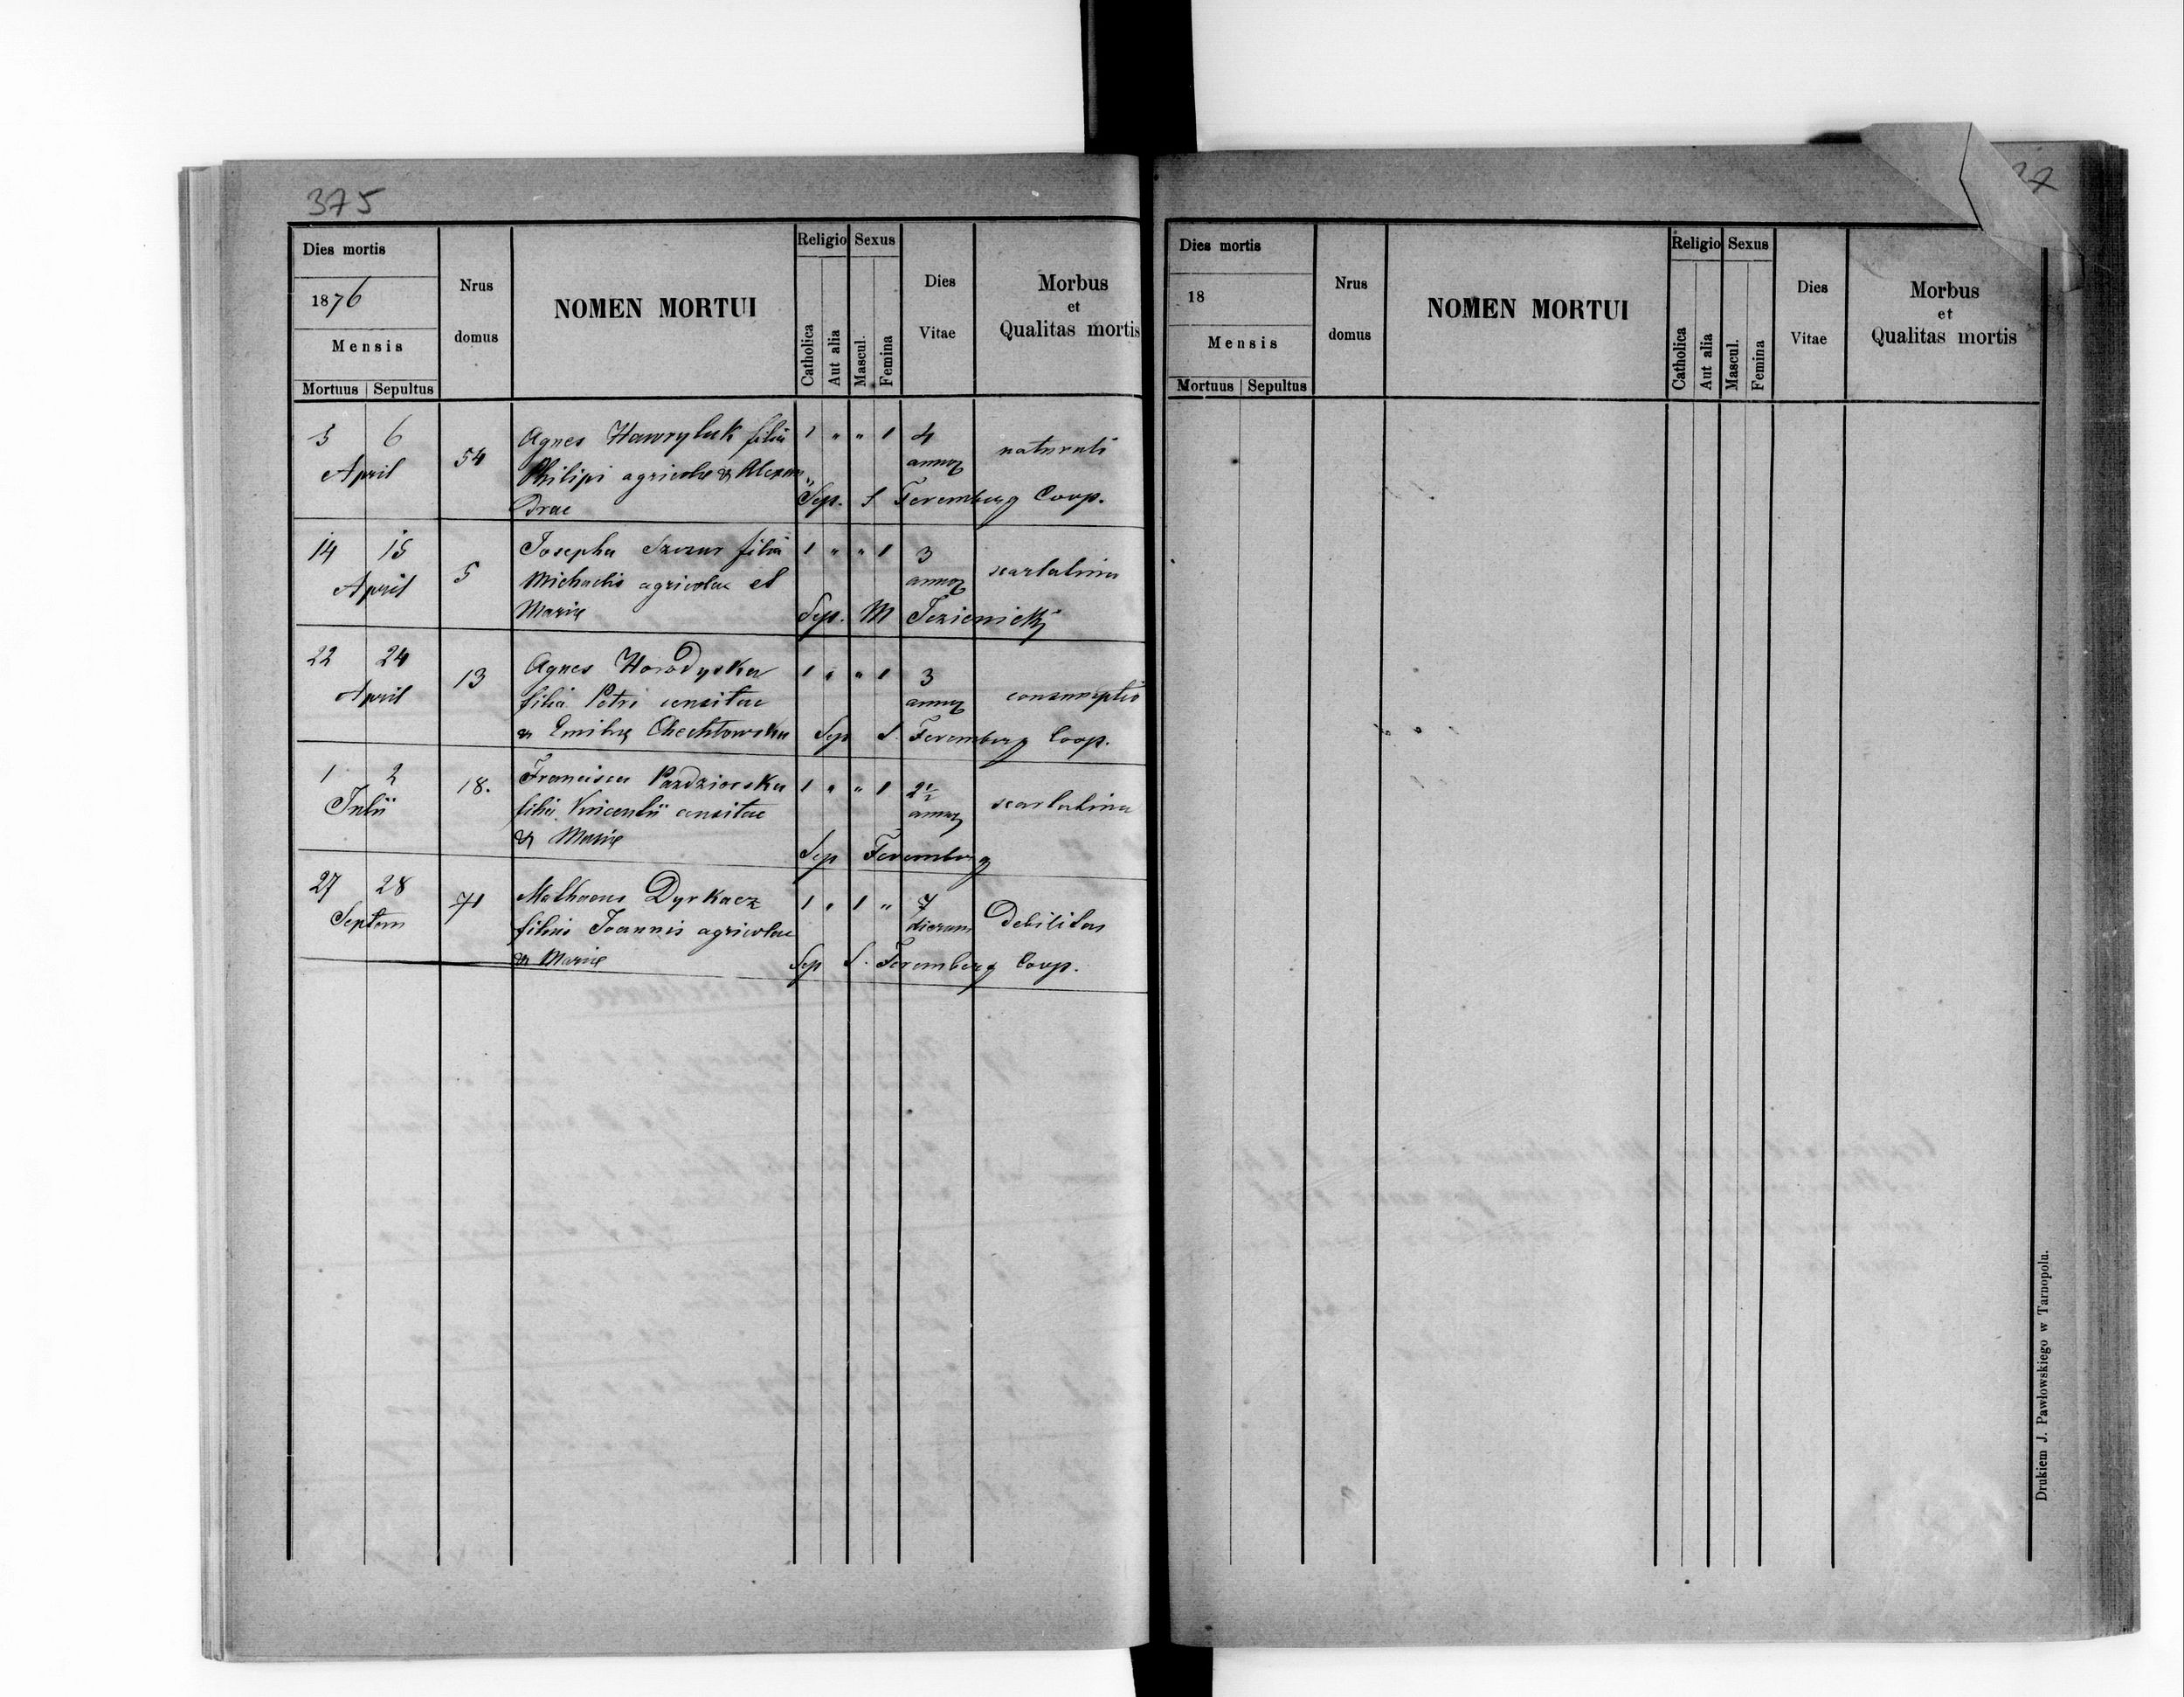 375
Dies mortis
1876
Mensis
Mortuus Sepultus
Nrus domus
NOMEN MORTUI
Religio
Catholica
Aut alia
Sexus
Mascul.
Femina
Dies Vitae
Morbus et Qualitas mortis
5 6 54 Agnes Hawryluk filia 1 " " 1 4 naturali
April Philipi agricolae & Alexan annor
drae Sep. S Feremberg Coop.
14 15 5 Josepha Szczur filia 1 " " 1 3 scarlatina
April Michaelis agricolae et annor
Mariae Sep. M Jezienicki
22 24 13 Agnes Horodyska 1 " " 1 3 consumptio
April filia Petri censitae annor
& Emiliae Chechlowska Sep S. Feremberg Coop.
1 2 18. Francisca Pazdziorska 1 " " 1 2 1/2 scarlatina
Julii filia Vincentii censitae annor
& Mariae Sep Feremberg
27 28 71 Mathaeus Dyrkacz 1 " 1 " 7 Debilitas
Septem filius Joannis agricolae dierum
& Mariae Sep S. Feremberg Coop.
Dies mortis
18
Mensis
Mortuus Sepultus
Nrus domus
NOMEN MORTUI
Religio
Catholica
Aut alia
Sexus
Mascul.
Femina
Dies Vitae
Morbus et Qualitas mortis
Drukiem J. Pawłowskiego w Tarnopolu.